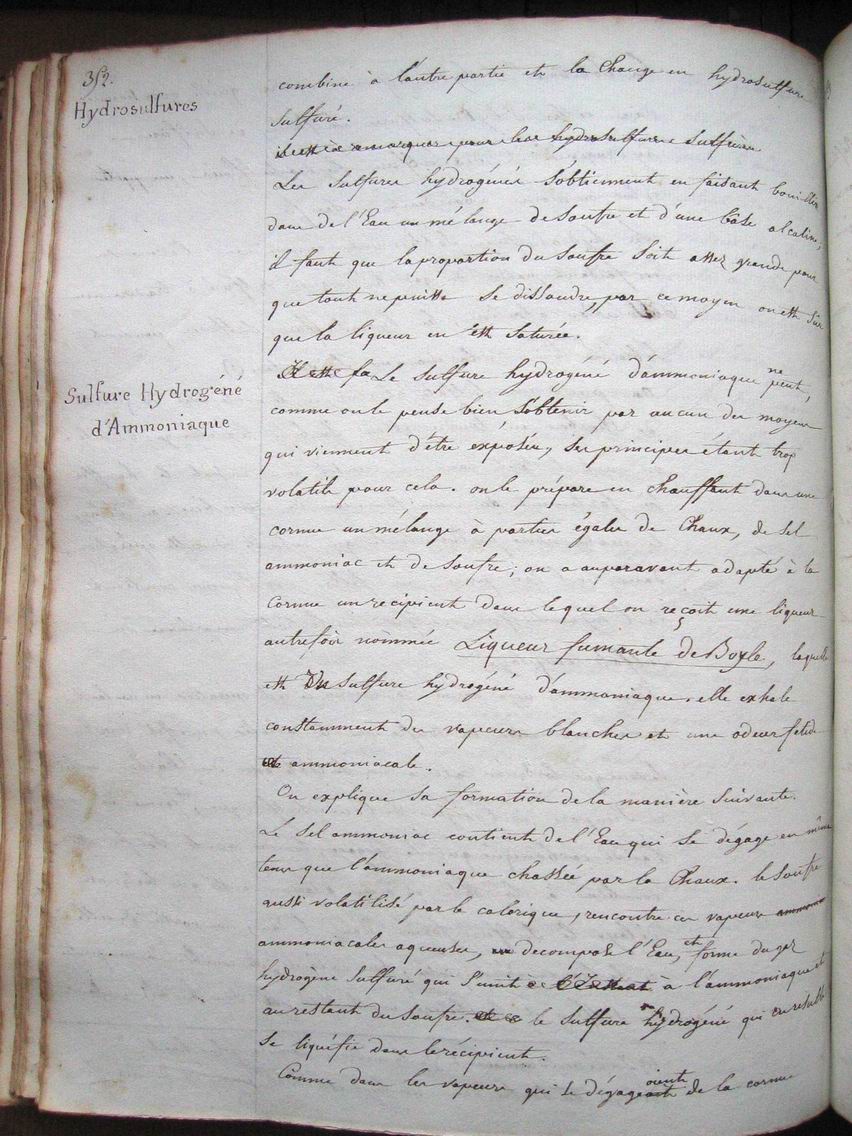 352.
Hydrosulfures
combine à l'autre partie et la change en hydrosulfure
sulfuré.
Les sulfures hydrogénés s'obtiennent en faisant bouillir
dans de l'Eau un mélange de soufre et d'une bâse alcaline;
il faut que la proportion du soufre soit assez grande pour
que tout ne puisse se dissoudre, par ce moyen on est sûr
que la liqueur en est saturée.
Sulfure Hydrogéné
d'Ammoniaque
Le sulfure hydrogéné d'ammoniaque ne peut,
comme on le pense bien s'obtenir par aucun des moyens
qui viennent d'être exposés, ses principes étant trop
volatils pour cela. on le prépare en chauffant dans une
cornue un mélange à parties égales de Chaux, de sel
ammoniac et de soufre; on a auparavant adapté à la
cornue un recipient dans lequel on reçoit une liqueur
autrefois nommée Liqueur fumante de Boyle, laquelle
est sulfure hydrogéné d'ammoniaque. elle exhale
constamment des vapeurs blanches et une odeur fetide
ammoniacale.
On explique sa formation de la manière suivante.
Le sel ammoniac contient de l'Eau qui se dégage en même
tems que l'ammoniaque chassée par la Chaux. le soufre
aussi volatilisé par le calorique, rencontre ces vapeurs
ammoniacales aqueuses, decompose l'Eau, et forme du gaz
hydrogène sulfuré qui s'unit à l'ammoniaque et
au restant du soufre. le sulfure hydrogéné qui en résulte
se liquéfie dans le récipient.
Comme dans les vapeurs qui se dégageoient de la cornue